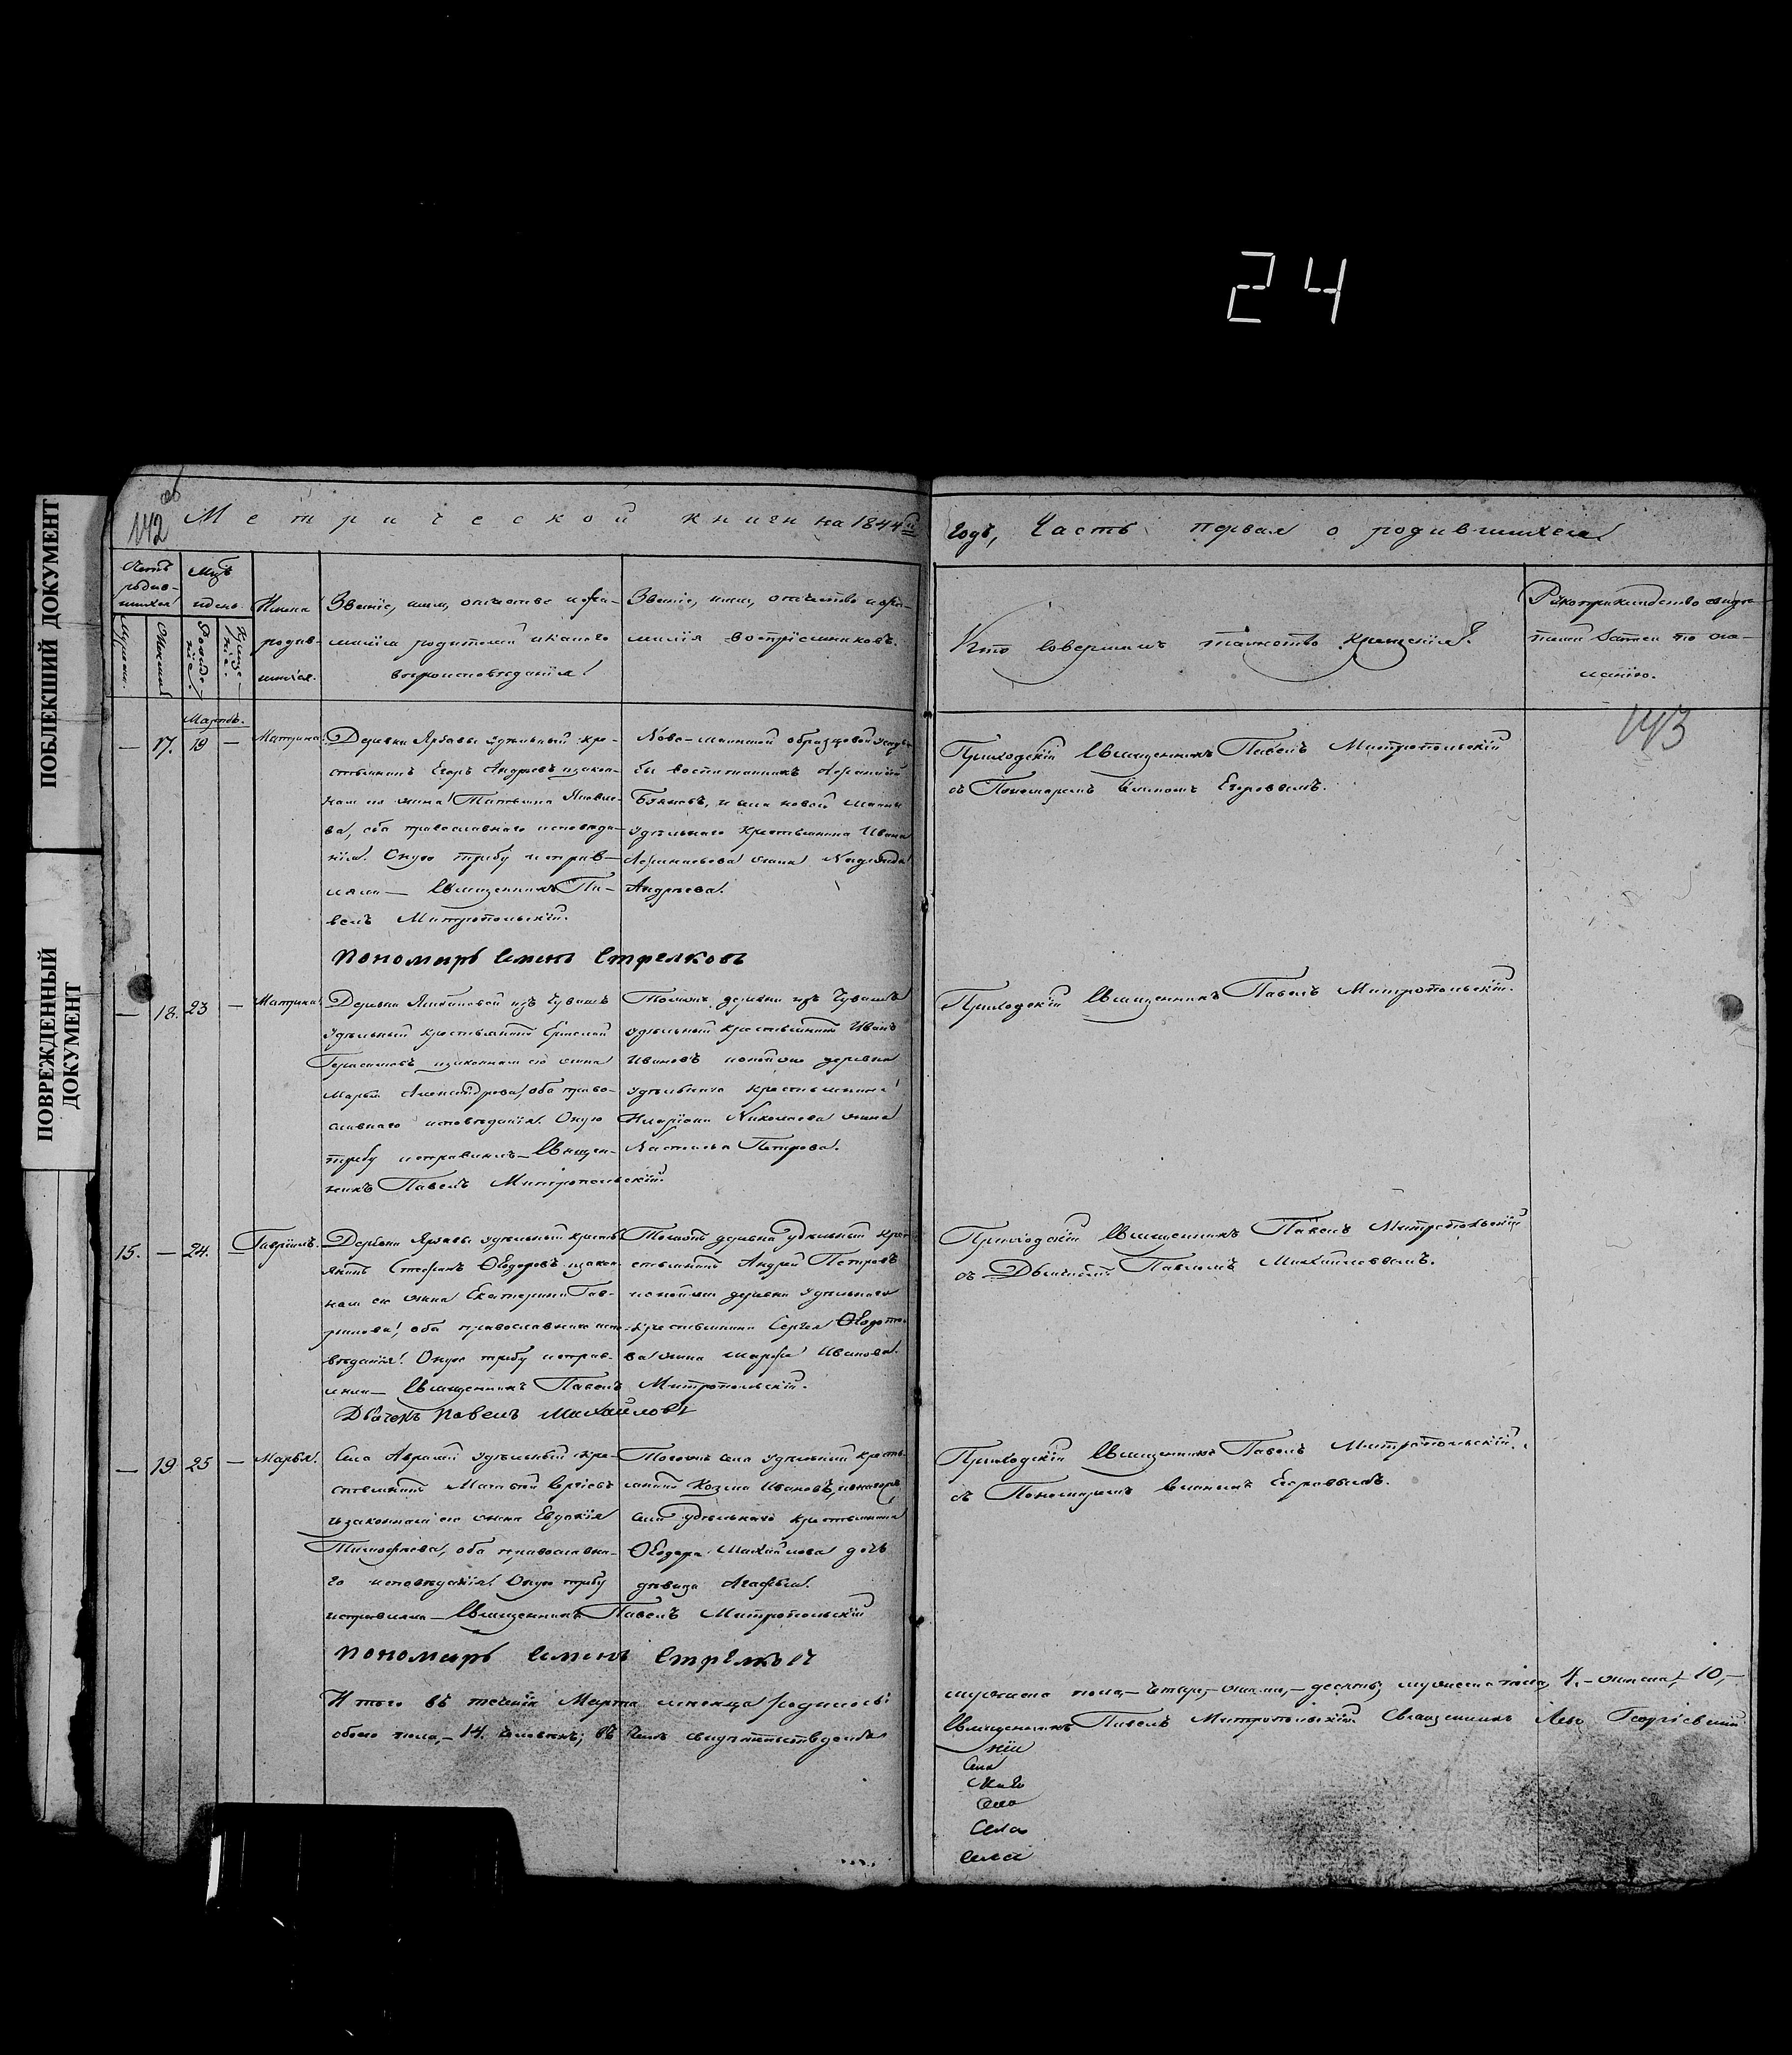 24
ПОБЛЕКШИЙ ДОКУМЕНТ
ПОВРЕЖДЕННЫЙ
ДОКУМЕНТ
142 об
Метрической книги на 1844й
годъ, Часть первая о родившихся
Счетъ родив-
шихся
Мужеска.
Женска
Мцъ
и день
Рожде-
ніе.
Креще-
ніе.
Имена
родив-
шихся.
Званіе, имя, отчество и фа-
милія родителей и какого
вѣроисповѣданія
Званіе, имя, отчество и фа-
милія воспріемниковъ.
Кто совершалъ таинство крещенія?
Рукоприкладство свидѣ-
телей записи по же-
ланію.
143
Мартъ.
— 17. 19 — Матрина
Деревни удѣльный кре-
стьянинъ Егоръ Андреевъ и закон-
ная его жена Татьяна Яковле-
ва, оба православнаго исповѣда-
нія. Оную требу исправ-
ляли — Священникъ Па-
велъ Митропольскій.
образцовой усадь-
бы воспитанникъ
и села новой
удѣльнаго крестьянина Ивана
жена Надежда
Андреева.
Приходскій Священникъ Павелъ Митропольскій
съ Пономаремъ Егоровымъ.
Пономарь Семенъ Стрелковъ
— 18. 23 — Матрина
Деревни изъ Чувашъ
удѣльный крестьянинъ
Герасимовъ и законная его жена
Марья Александрова, оба право-
славнаго исповѣданія. Оную
требу исправлялъ — Священ-
никъ Павелъ Митропольскій
Тойже деревни изъ Чувашъ
удѣльный крестьянинъ Иванъ
Ивановъ и тойже деревни
удѣльнаго крестьянина
Иларіона Николаева жена
Настасья Петрова.
Приходскій Священникъ Павелъ Митропольскій.
15. — 24. — Гавріилъ.
Деревни удѣльный кресть-
янинъ Стефанъ Ѳеодоровъ и закон-
ная его жена Екатерина Гав-
рилова, оба православнаго испо-
вѣданія. Оную требу исправ-
ляли — Священникъ Павелъ Митропольскій.
Дьячекъ Павелъ Михайловъ
Тойже деревни удѣльный кре-
стьянинъ Андрей Петровъ
и тойже деревни удѣльнаго
крестьянина Сергея Ѳеодото-
ва жена Марфа Иванова.
Приходскій Священникъ Павелъ Митропольскій
съ Дьячкомъ Павломъ Михайловымъ.
— 19 25 — Марья.
Села удѣльный кре-
стьянинъ Матвей
и законная его жена Евдокія
Тимофѣева, оба православна-
го исповѣданія. Оную требу
исправляли — Священникъ Павелъ Митропольскій
Пономарь Семенъ Стрелковъ
Тогоже села удѣльный кресть-
янинъ Козма Ивановъ,
села удѣльнаго крестьянина
Ѳеодора Михайлова дочь
дѣвица Агафья.
Приходскій Священникъ Павелъ Митропольскій
съ Пономаремъ Егоровымъ.
Итого въ теченіи Марта месяца родилось:
мужеска пола, — четыре, — женска, — десять; мужеска пола, 4. — женска, — 10, —
обоего пола, — 14. человѣкъ; въ чемъ свидѣтельствуемъ
Священникъ Павелъ Митропольскій Священникъ Левъ Георгіевскій
Села
Села